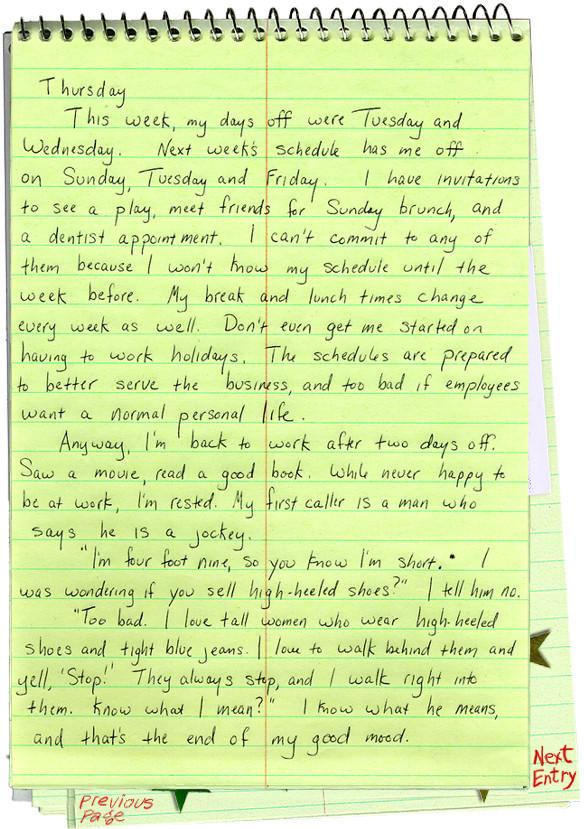 Thursday
This week, my days off were Tuesday and
Wednesday. Next week's schedule has me off
on Sunday, Tuesday and Friday. I have invitations
to see a play, meet friends for Sunday brunch, and
a dentist appointment. I can't commit to any of
them because I won't know my schedule until the
week before. My break and lunch times change
every week as well. Don't even get me started on
having to work holidays. The schedules are prepared
to better serve the business, and too bad if employees
want a normal personal life.
Anyway, I'm back to work after two days off.
Saw a movie, read a good book. While never happy to
be at work, I'm rested. My first caller is a man who
says he is a jockey.
"I'm four foot nine, so you know I'm short." I
was wondering if you sell high-heeled shoes?" I tell him no.
"Too bad. I love tall women who wear high-heeled
shoes and tight blue jeans. I love to walk behind them and
yell, 'Stop!' They always stop, and I walk right into
them. Know what I mean?" I know what he means,
and that's the end of my good mood.
Next
Entry
Previous
Page